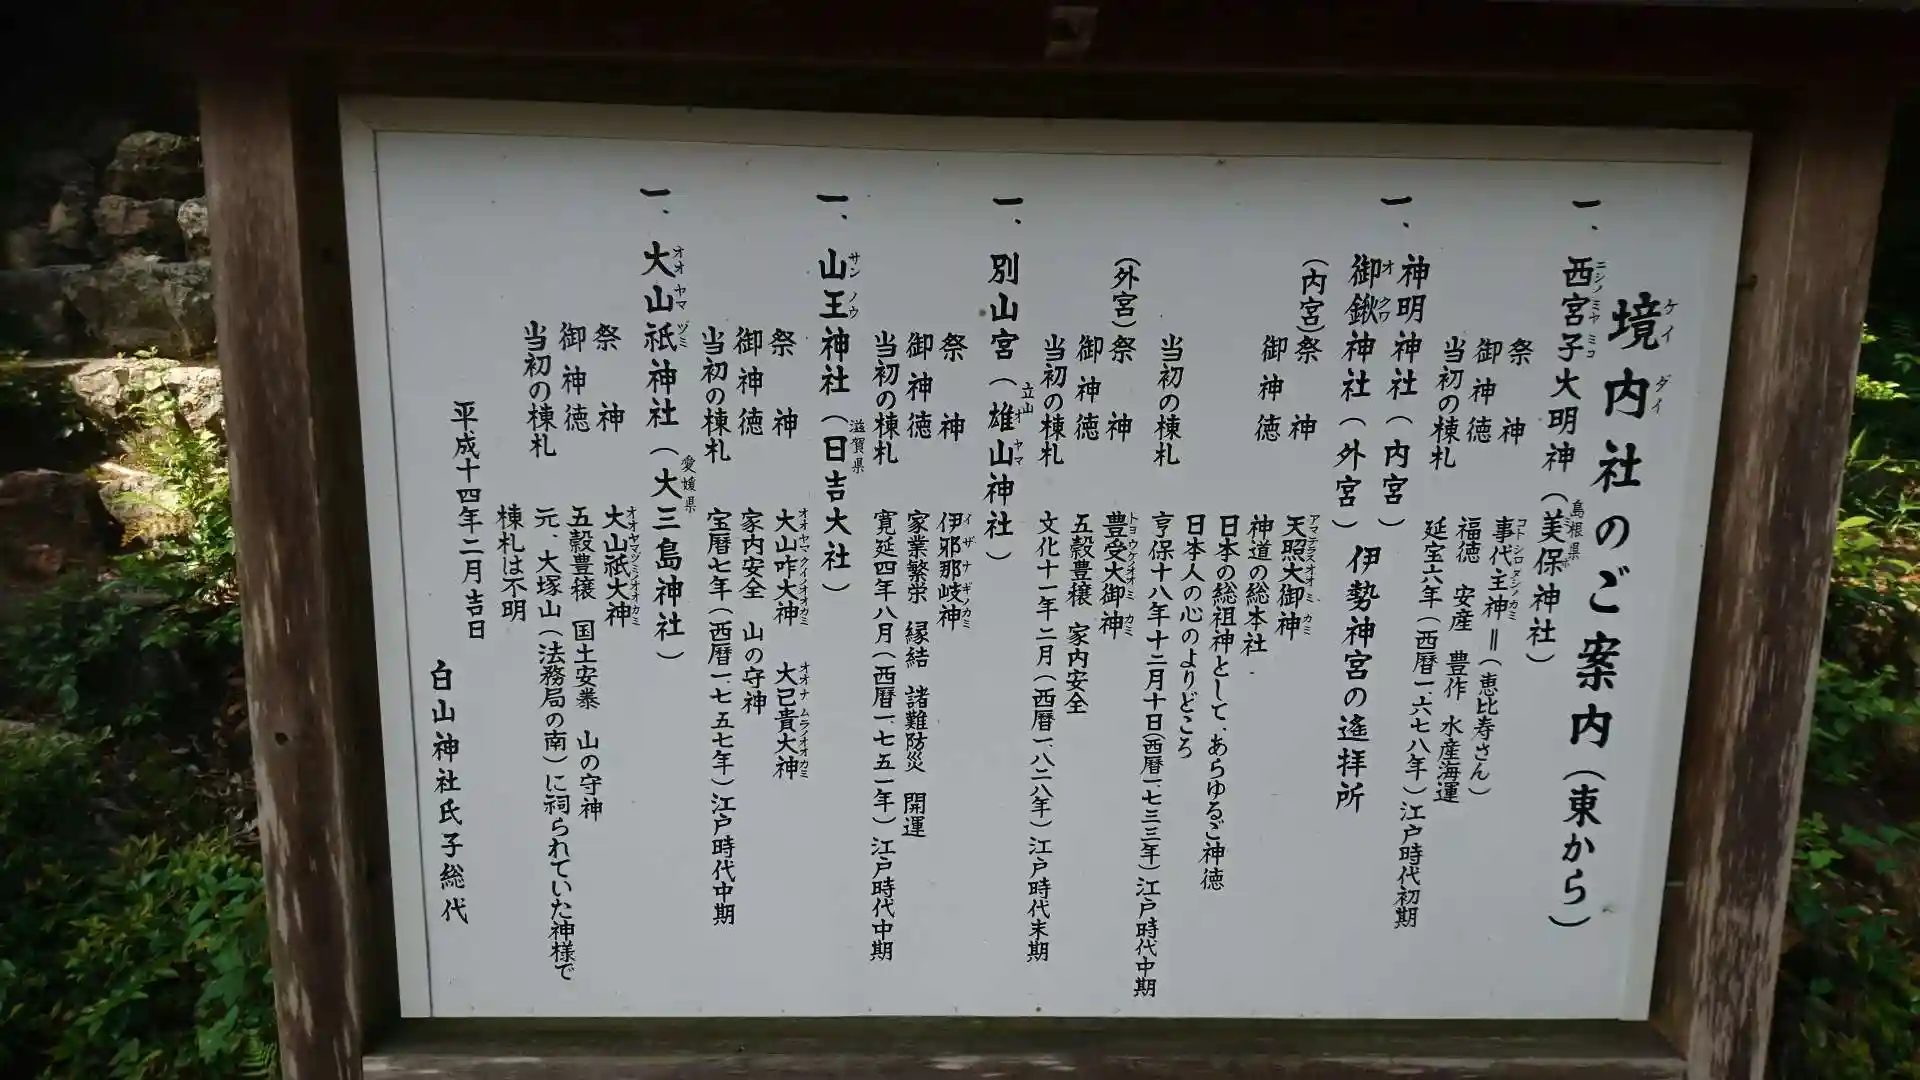 境内社のご案内（東から）
一、西宮子大明神（美保神社）
祭神 事代主神＝（恵比寿さん）
御神徳 福徳 安産 豊作 水産海運
当初の棟札 延宝六年（西暦一、六七八年）江戸時代初期
一、神明神社（内宮）
御鍬神社（外宮）伊勢神宮の遙拝所
（内宮）祭神 天照大御神
御神徳 神道の総本社
日本の総祖神として、あらゆるご神徳
日本人の心のよりどころ
当初の棟札 亨保十八年十二月十日（西暦一、七三三年）江戸時代中期
（外宮）祭神 豊受大御神
御神徳 五穀豊穣 家内安全
当初の棟札 文化十一年二月（西暦一、八二八年）江戸時代末期
一、別山宮（雄山神社）
祭神 伊邪那岐神
御神徳 家業繁栄 縁結 諸難防災 開運
当初の棟札 寛延四年八月（西暦一、七五一年）江戸時代中期
一、山王神社（日吉大社）
祭神 大山咋大神 大己貴大神
御神徳 家内安全 山の守神
当初の棟札 宝暦七年（西暦一、七五七年）江戸時代中期
一、大山祇神社（大三島神社）
祭神 大山祇大神
御神徳 五穀豊穣 国土安泰 山の守神
当初の棟札 元、大塚山（法務局の南）に祠られていた神様で
棟札は不明
平成十四年二月吉日
白山神社氏子総代